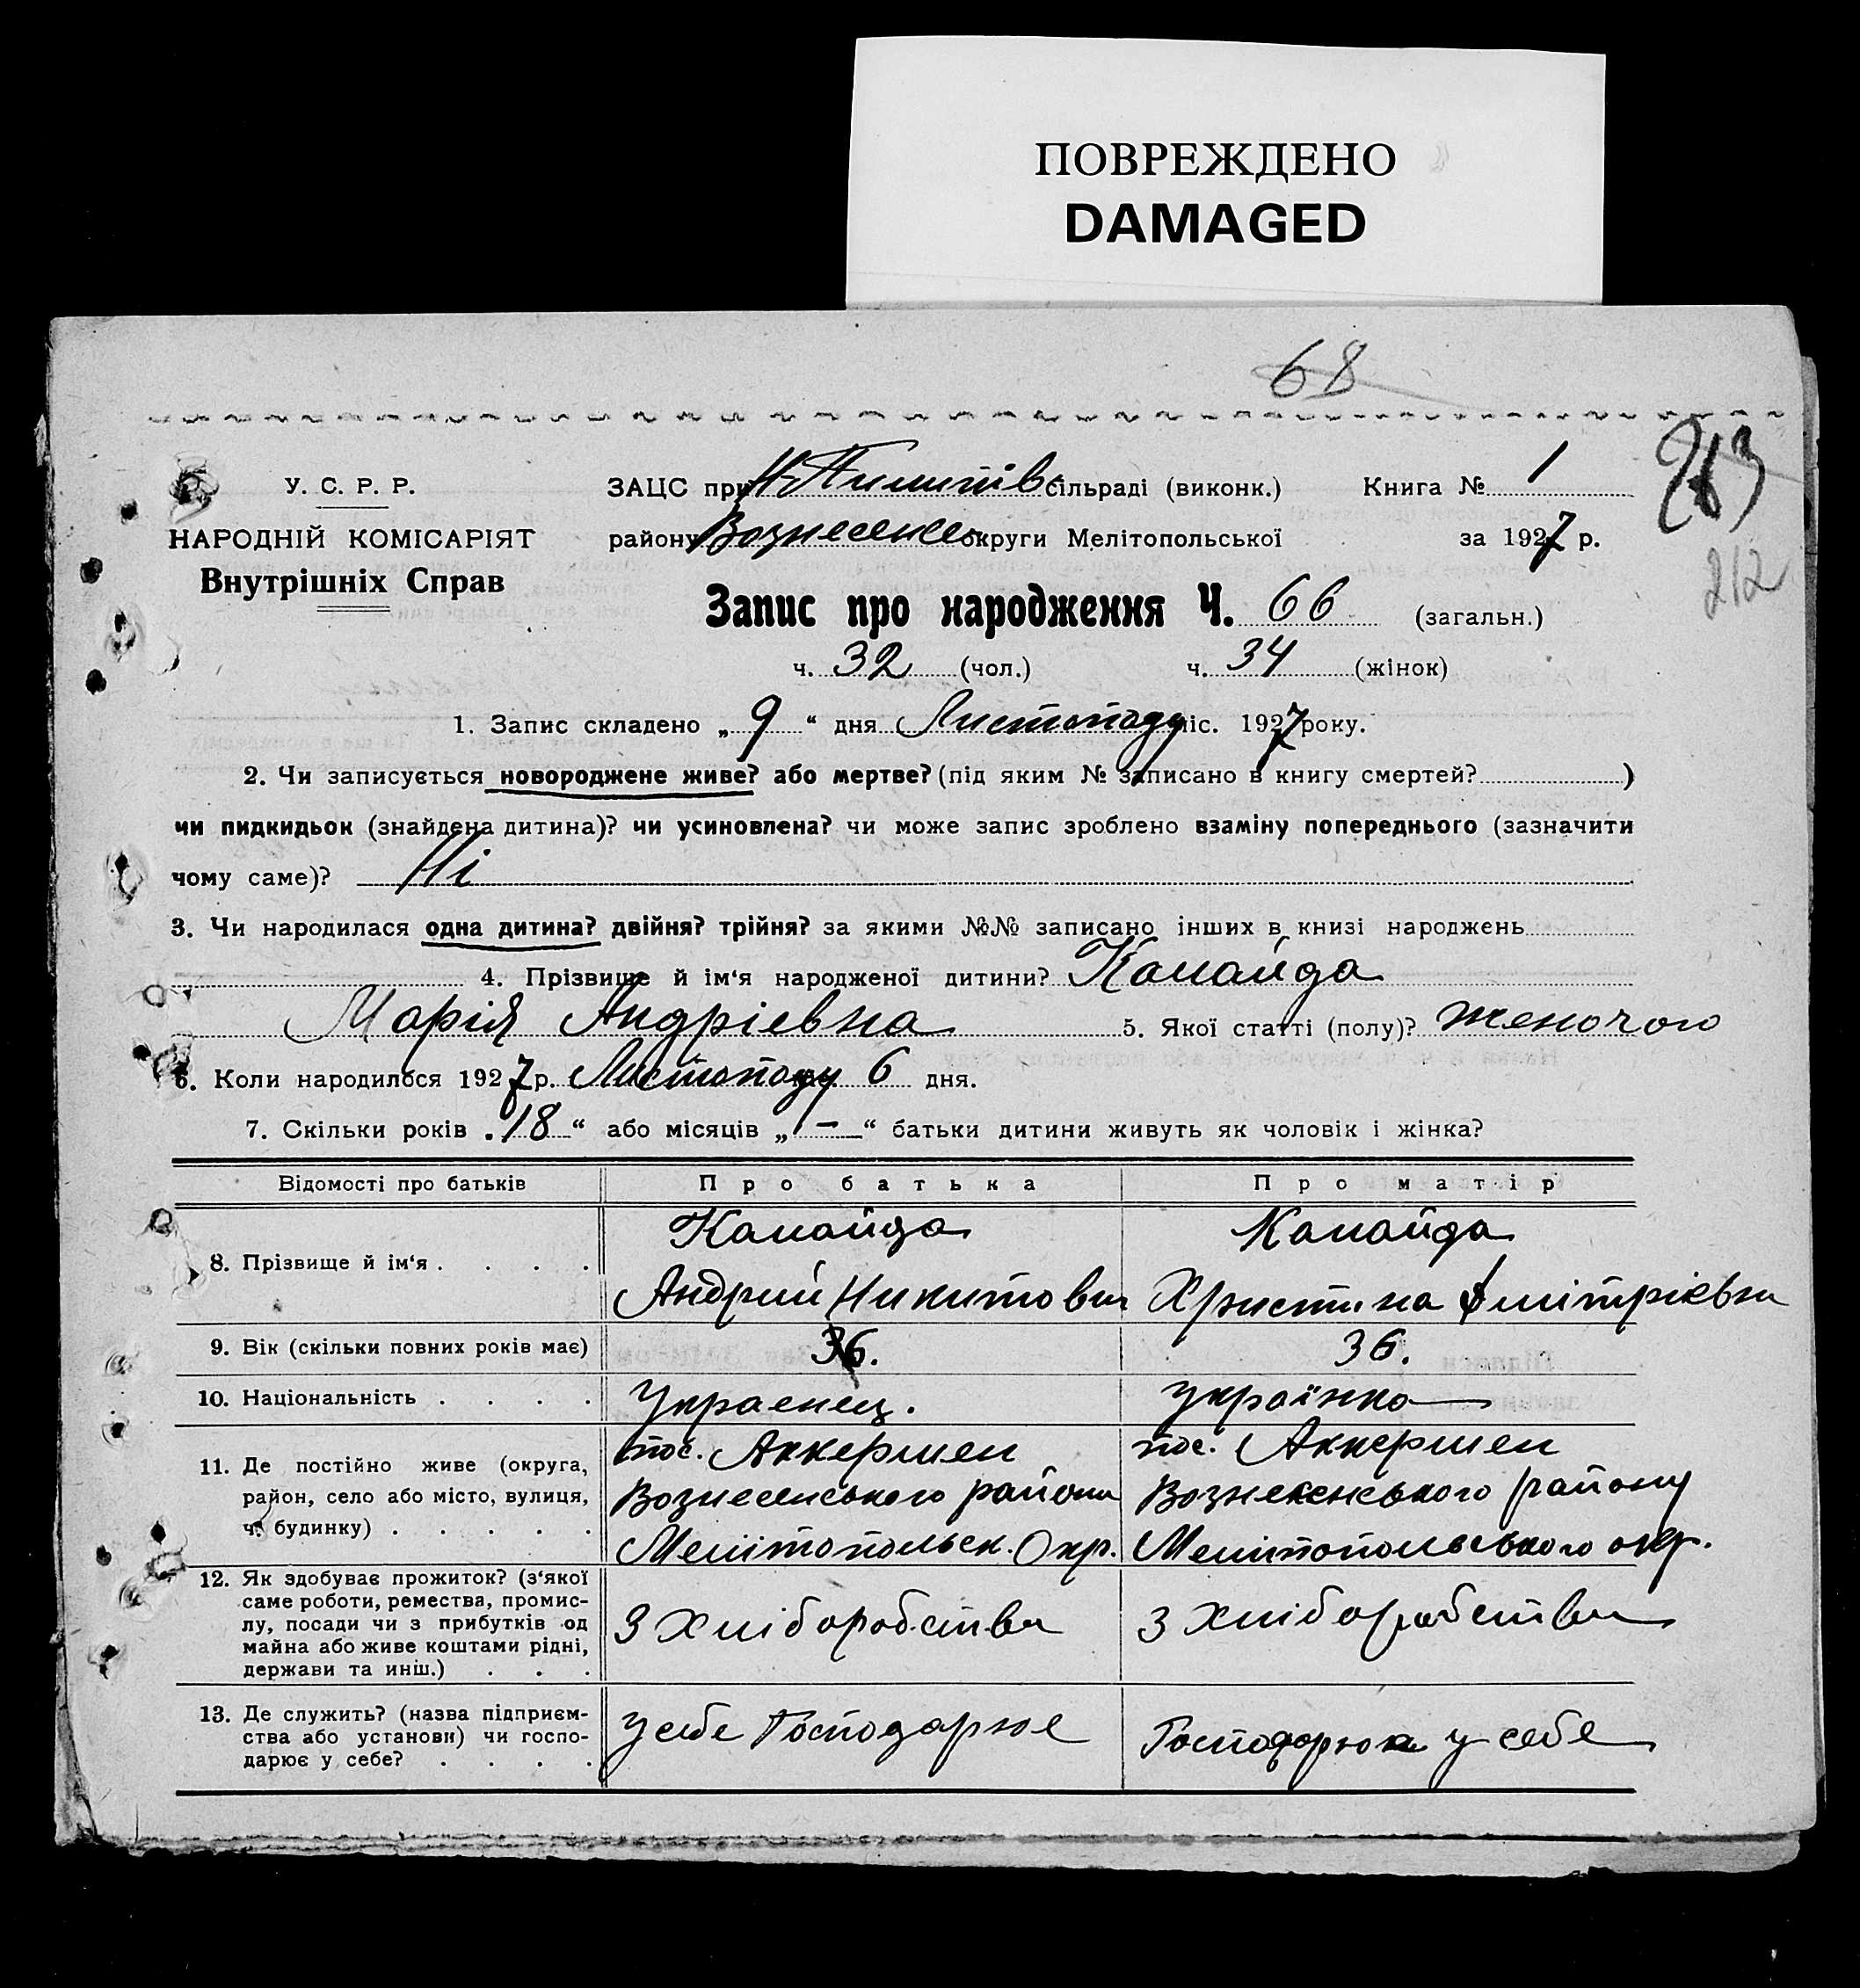 ПОВРЕЖДЕНО
DAMAGED
68
У. С. Р. Р.
НАРОДНІЙ КОМІСАРІЯТ
Внутрішніх Справ
ЗАЦС при Н-Пилипів сільраді (виконк.) Книга № 1
району Вознесенсь округи Мелітопольської за 1927 р.
263
212
Запис про народження Ч. 66 (загальн.)
ч. 32 (чол.) ч. 34 (жінок)
1. Запис складено „ 9 “ дня Листопаду міс. 1927 року.
2. Чи записується новороджене живе? або мертве? (під яким № записано в книгу смертей? )
чи пидкидьок (знайдена дитина)? чи усиновлена? чи може запис зроблено взаміну попереднього (зазначити
чому саме)? Ні
3. Чи народилася одна дитина? двійня? трійня? за якими №№ записано інших в книзі народжень
4. Прізвище й ім‘я народженої дитини? Канайда
Марія Андріевна 5. Якої статті (полу)? женочого
6. Коли народилося 1927 р. Листопаду 6 дня.
7. Скільки років „ 18 “ або місяців „ — “ батьки дитини живуть як чоловік і жінка?
Відомості про батьків Про батька Про матір
8. Прізвище й ім‘я . . . .
Канайда
Андрий Никитович
Канайда
Христина Дмітріевна
9. Вік (скільки повних років має) 36. 36.
10. Національність . . . . Украенец. українка
11. Де постійно живе (округа,
район, село або місто, вулиця,
ч. будинку) . . . . .
пос. Аккермен
Вознесенського района
Мелітопольськ. Окр.
пос. Аккермен
Вознесенського району
Мелітопольського окр.
12. Як здобуває прожиток? (з‘якої
саме роботи, ремества, промис-
лу, посади чи з прибутків од
майна або живе коштами рідні,
держави та инш.) . . .
З Хліборобства
З Хліборобства
13. Де служить? (назва підприєм-
ства або установи) чи госпо-
дарює у себе? . . . .
У себе Господарює
Господарюк у себе